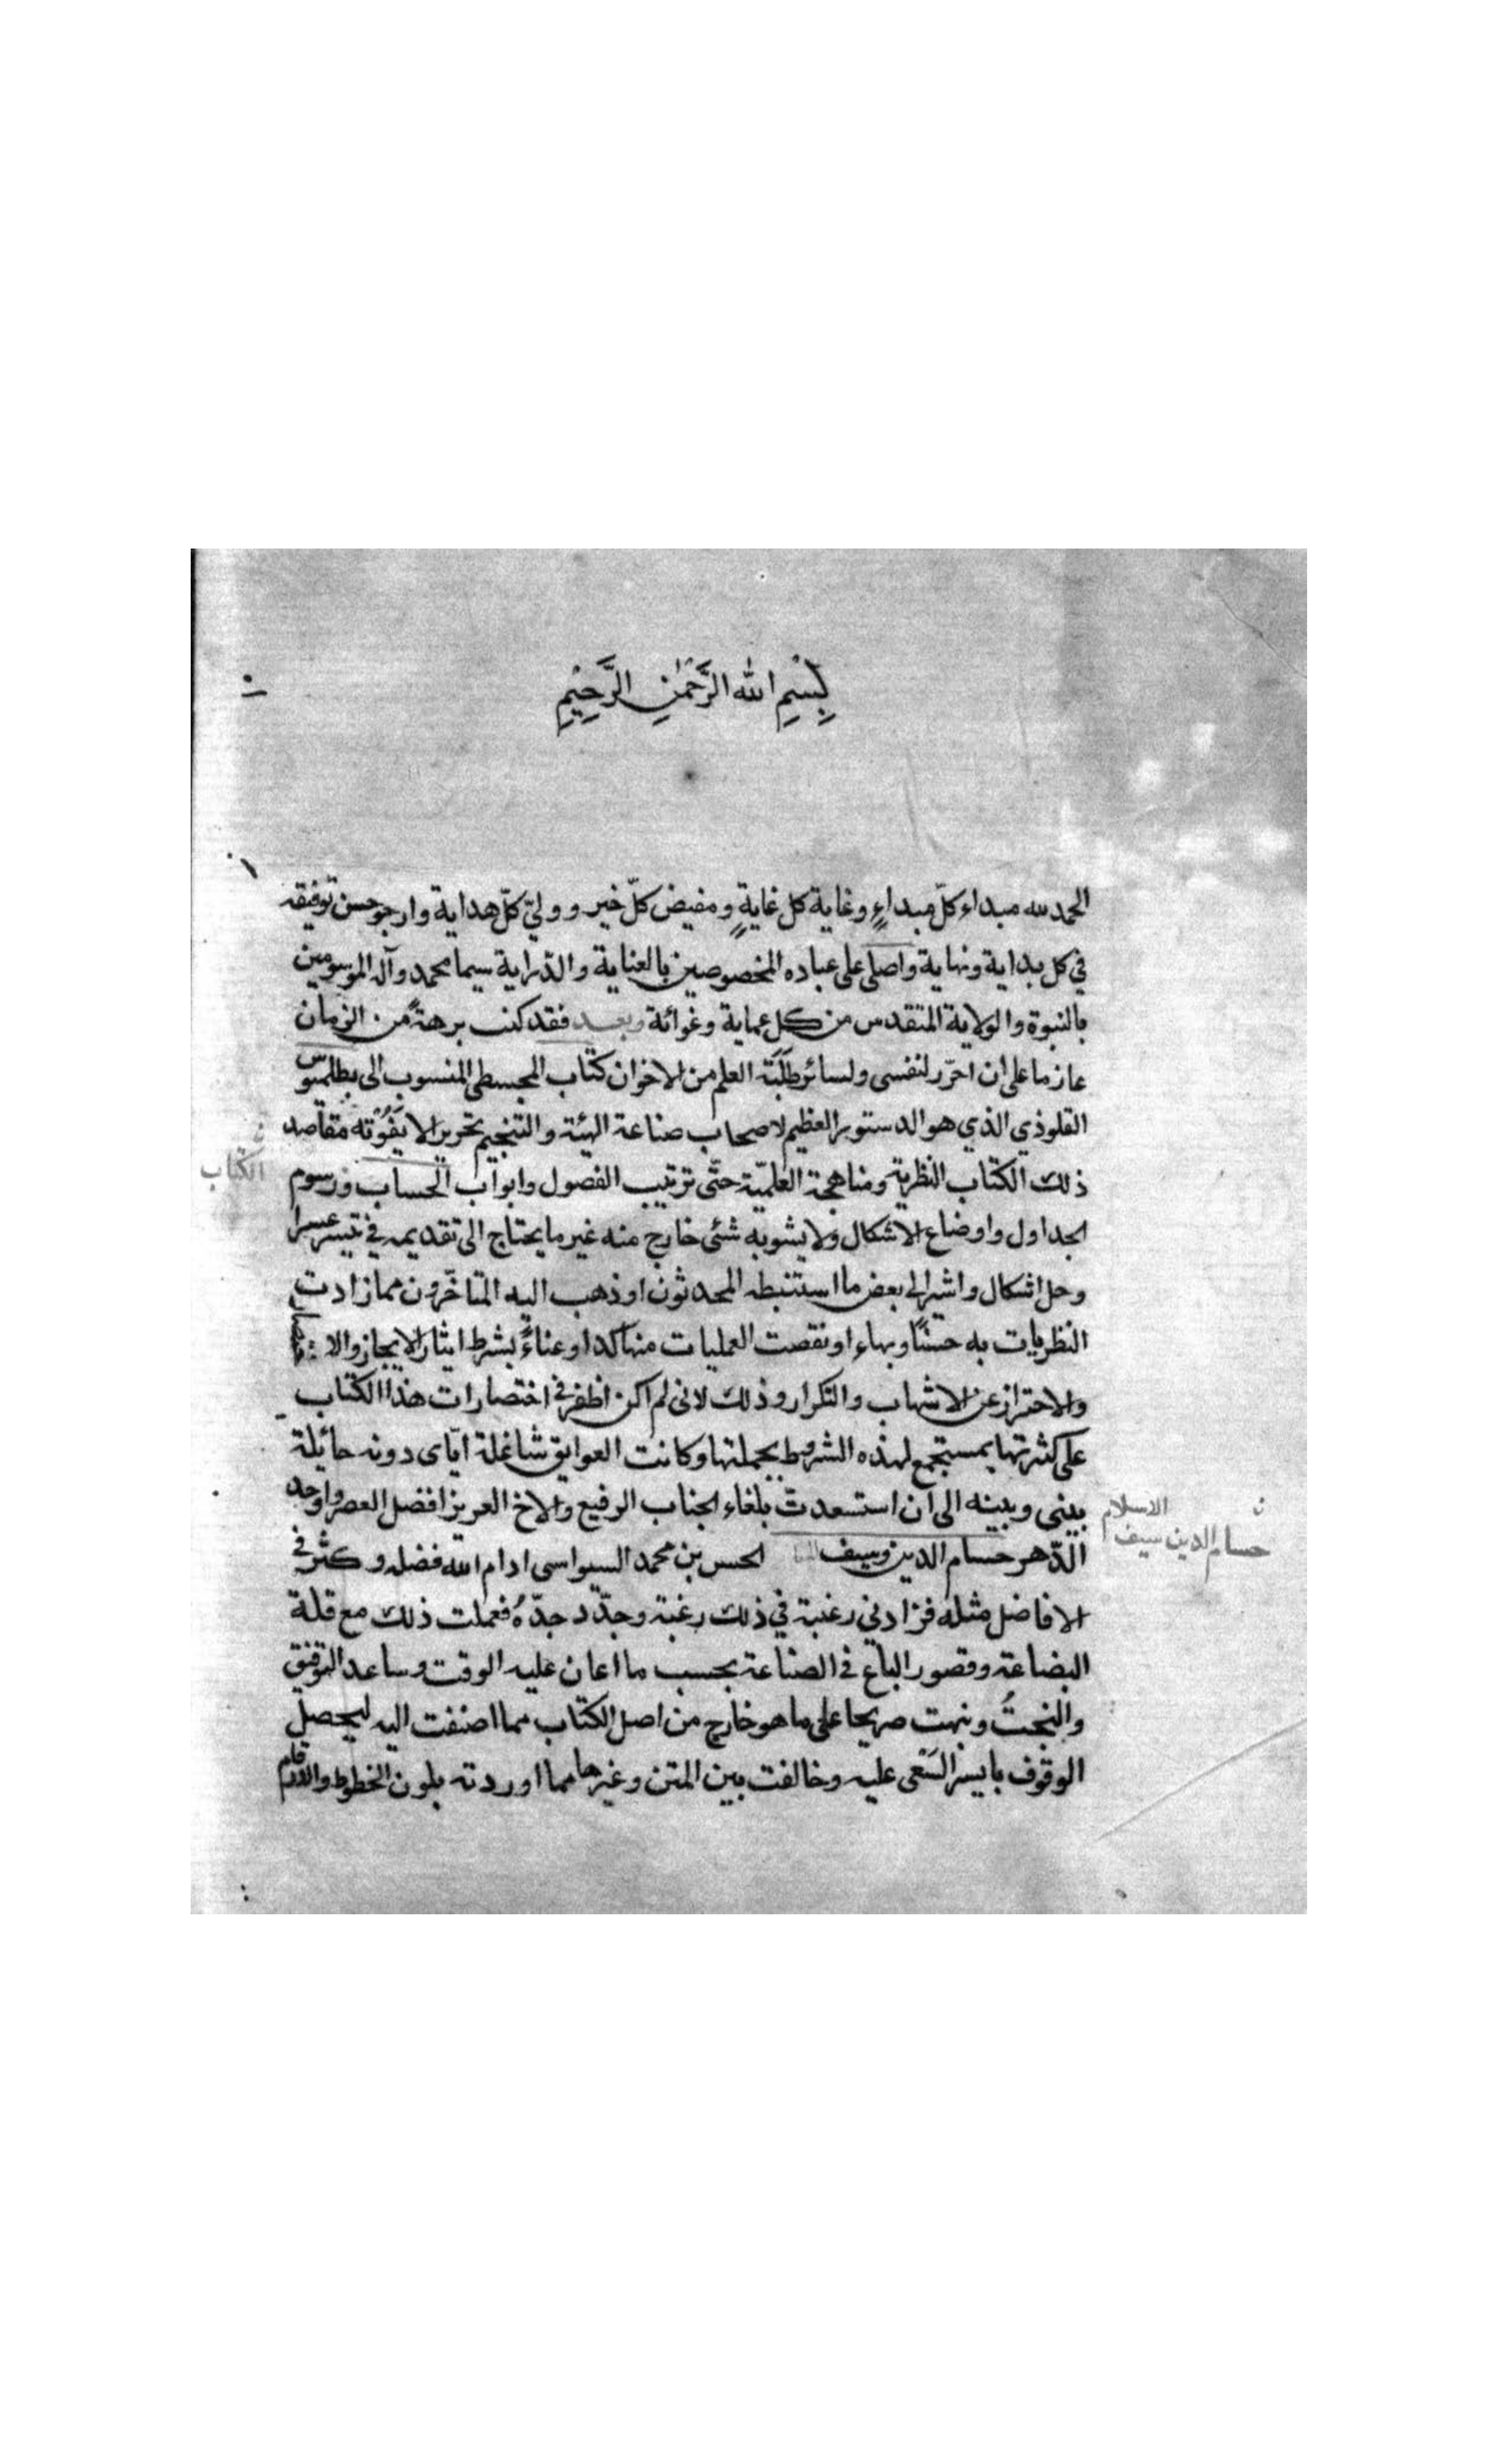 بِسْمِ اللّٰه الرَّحْمٰنِ الرَّحِيْمِ
الحمد لله مبداء كلّ مبداءٍ وغاية كل غايةٍ ومفيض كلّ خير وولىّ كلّ هداية وارجو حسن توفيقه
في كل بداية ونهاية واصلى على عباده المخصوصين بالعناية والدّراية سيما محمد وآله الموسومين
بالنبوة والولاية المتقدس من كل عماية وغوائة وبعد فقد كنت برهةً من الزمان
عازما على ان احرّر لنفسى ولسائر طَلَبَة العلم من الاخوان كتاب المجسطى المنسوب الى بطلميوس
القلوذي الذي هو الدستور العظيم لاصحاب صناعة الهيئة والتنجيم تحريرا لا يَفُوْته مقاصد
ذلك الكتاب النظرية ومناهجة العلميّة حتّى ترتيب الفصول وابواب الحساب ورسوم
الكتاب
الجداول واوضاع الاشكال ولا يشوبه شئى خارج منه غير ما يحتاج الى تقديمه في تيسر عسر
وحل اشكال واشير الى بعض ما استنبطه المحدثون او ذهب اليه المتاخّرون مما زادت
النظريات به حسنًا وبهاء او نقصت العمليات منها كدا وعناءً بشرط ايثار الايجاز
والاحتراز عن الاشهاب والتكرار وذلك لانى لم اكن اظفر في اختصارات هذا الكتاب
على كثرتها بمستجمع لهذه الشروط بجملتها وكانت العوايق شاغلة ايّاى دونه حائلة
بينى وبينه الى ان استسعدت بلغاء الجناب الرفيع والاخ العزيز افضل العصر واوحد
الدّهر حسام الدين وسيف الحسن بن محمد السيواسى ادام الله فضله وكثر في
ن الاسلام
حسام الدين سيف
الافاضل مثله فزادنى رغبته في ذلك رغبة وجدّد جدّهُ فعملت ذلك مع قلة
البضاعة وقصور الباع في الصناعة بحسب ما اعان عليه الوقت وساعد التوفيق
والنجتُ ونبهت صريحا على ما هو خارج من اصل الكتاب مما اضفت اليه ليحصل
الوقوف بايسر السَعى عليه وخالفت بين المتن وغيرها مما اوردته بلون الخطوط والارقام